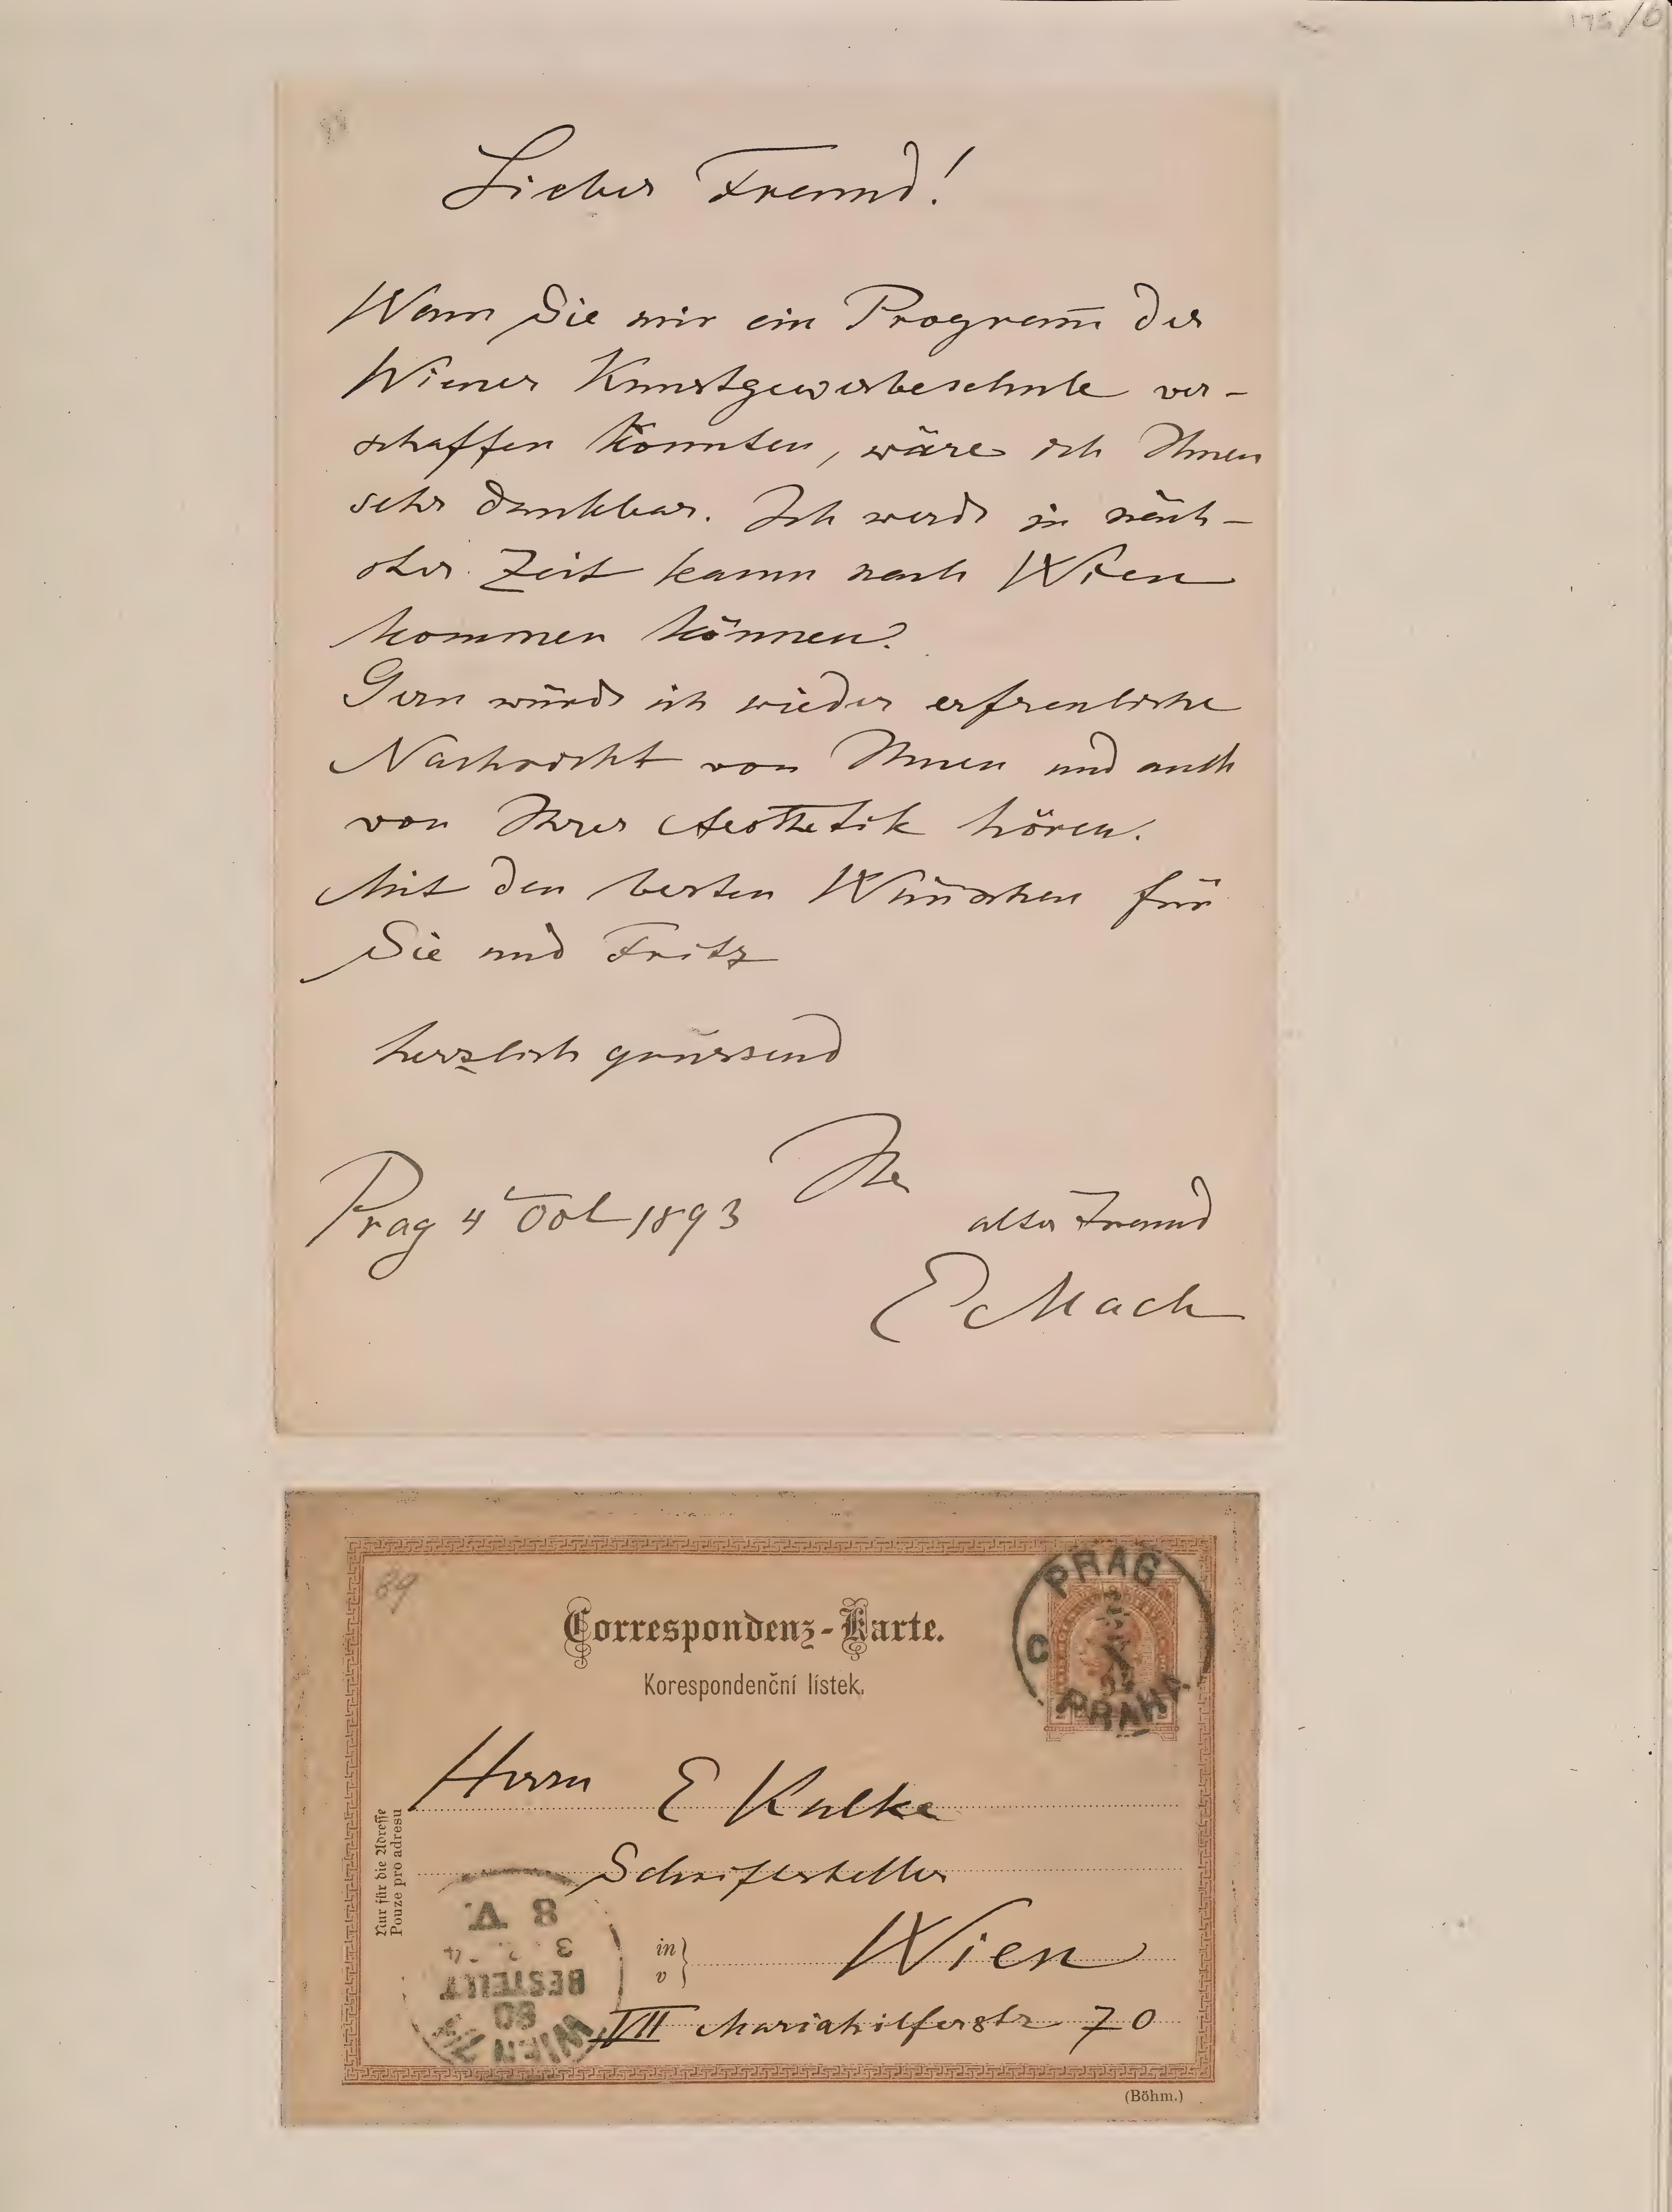 175/6
Lieber Freund!
Wenn Sie mir ein Program̅ der
Wiener Kunstgewerbeschule ver-
schaffen könnten, wäre ich Ihnen
sehr dankbar. Ich werde in näch-
ster Zeit kaum nach Wien
kommen können.
Gern würde ich wieder erfreuliche
Nachricht von Ihnen und auch
von Ihrer Aesthetik hören.
Mit den besten Wünschen für
Sie und Fritz
herzlich grüssend
Ihr
Prag 4 Oct 1893
alter Freund
E Mach
89
Correspondenz-Karte.
Korespondenční lístek.
PRAG
C
PRAHA
Herrn E Kulke
Schriftsteller
in
v
Wien
VII Mariahilferstr 70
Nur für die Adresse
Pouze pro adresu
WIEN
60
BESTELLT
8 V.
(Böhm.)